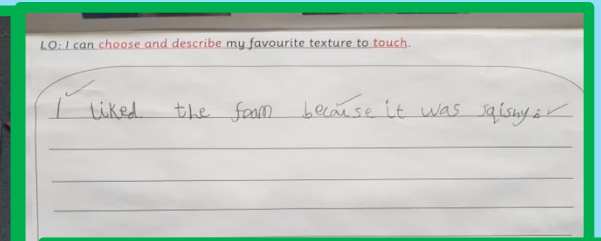 LO: I can choose and describe my favourite texture to touch.
I liked the foam because it was sqishy.